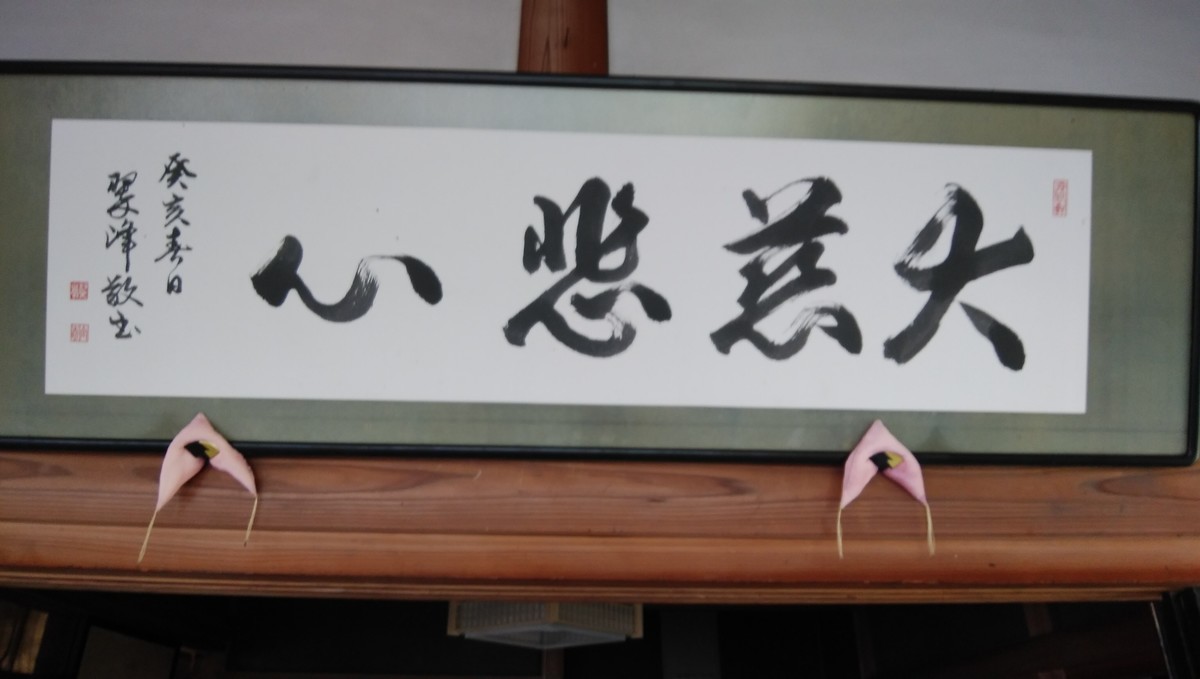 大慈悲心
癸亥春日
翠峰敬书